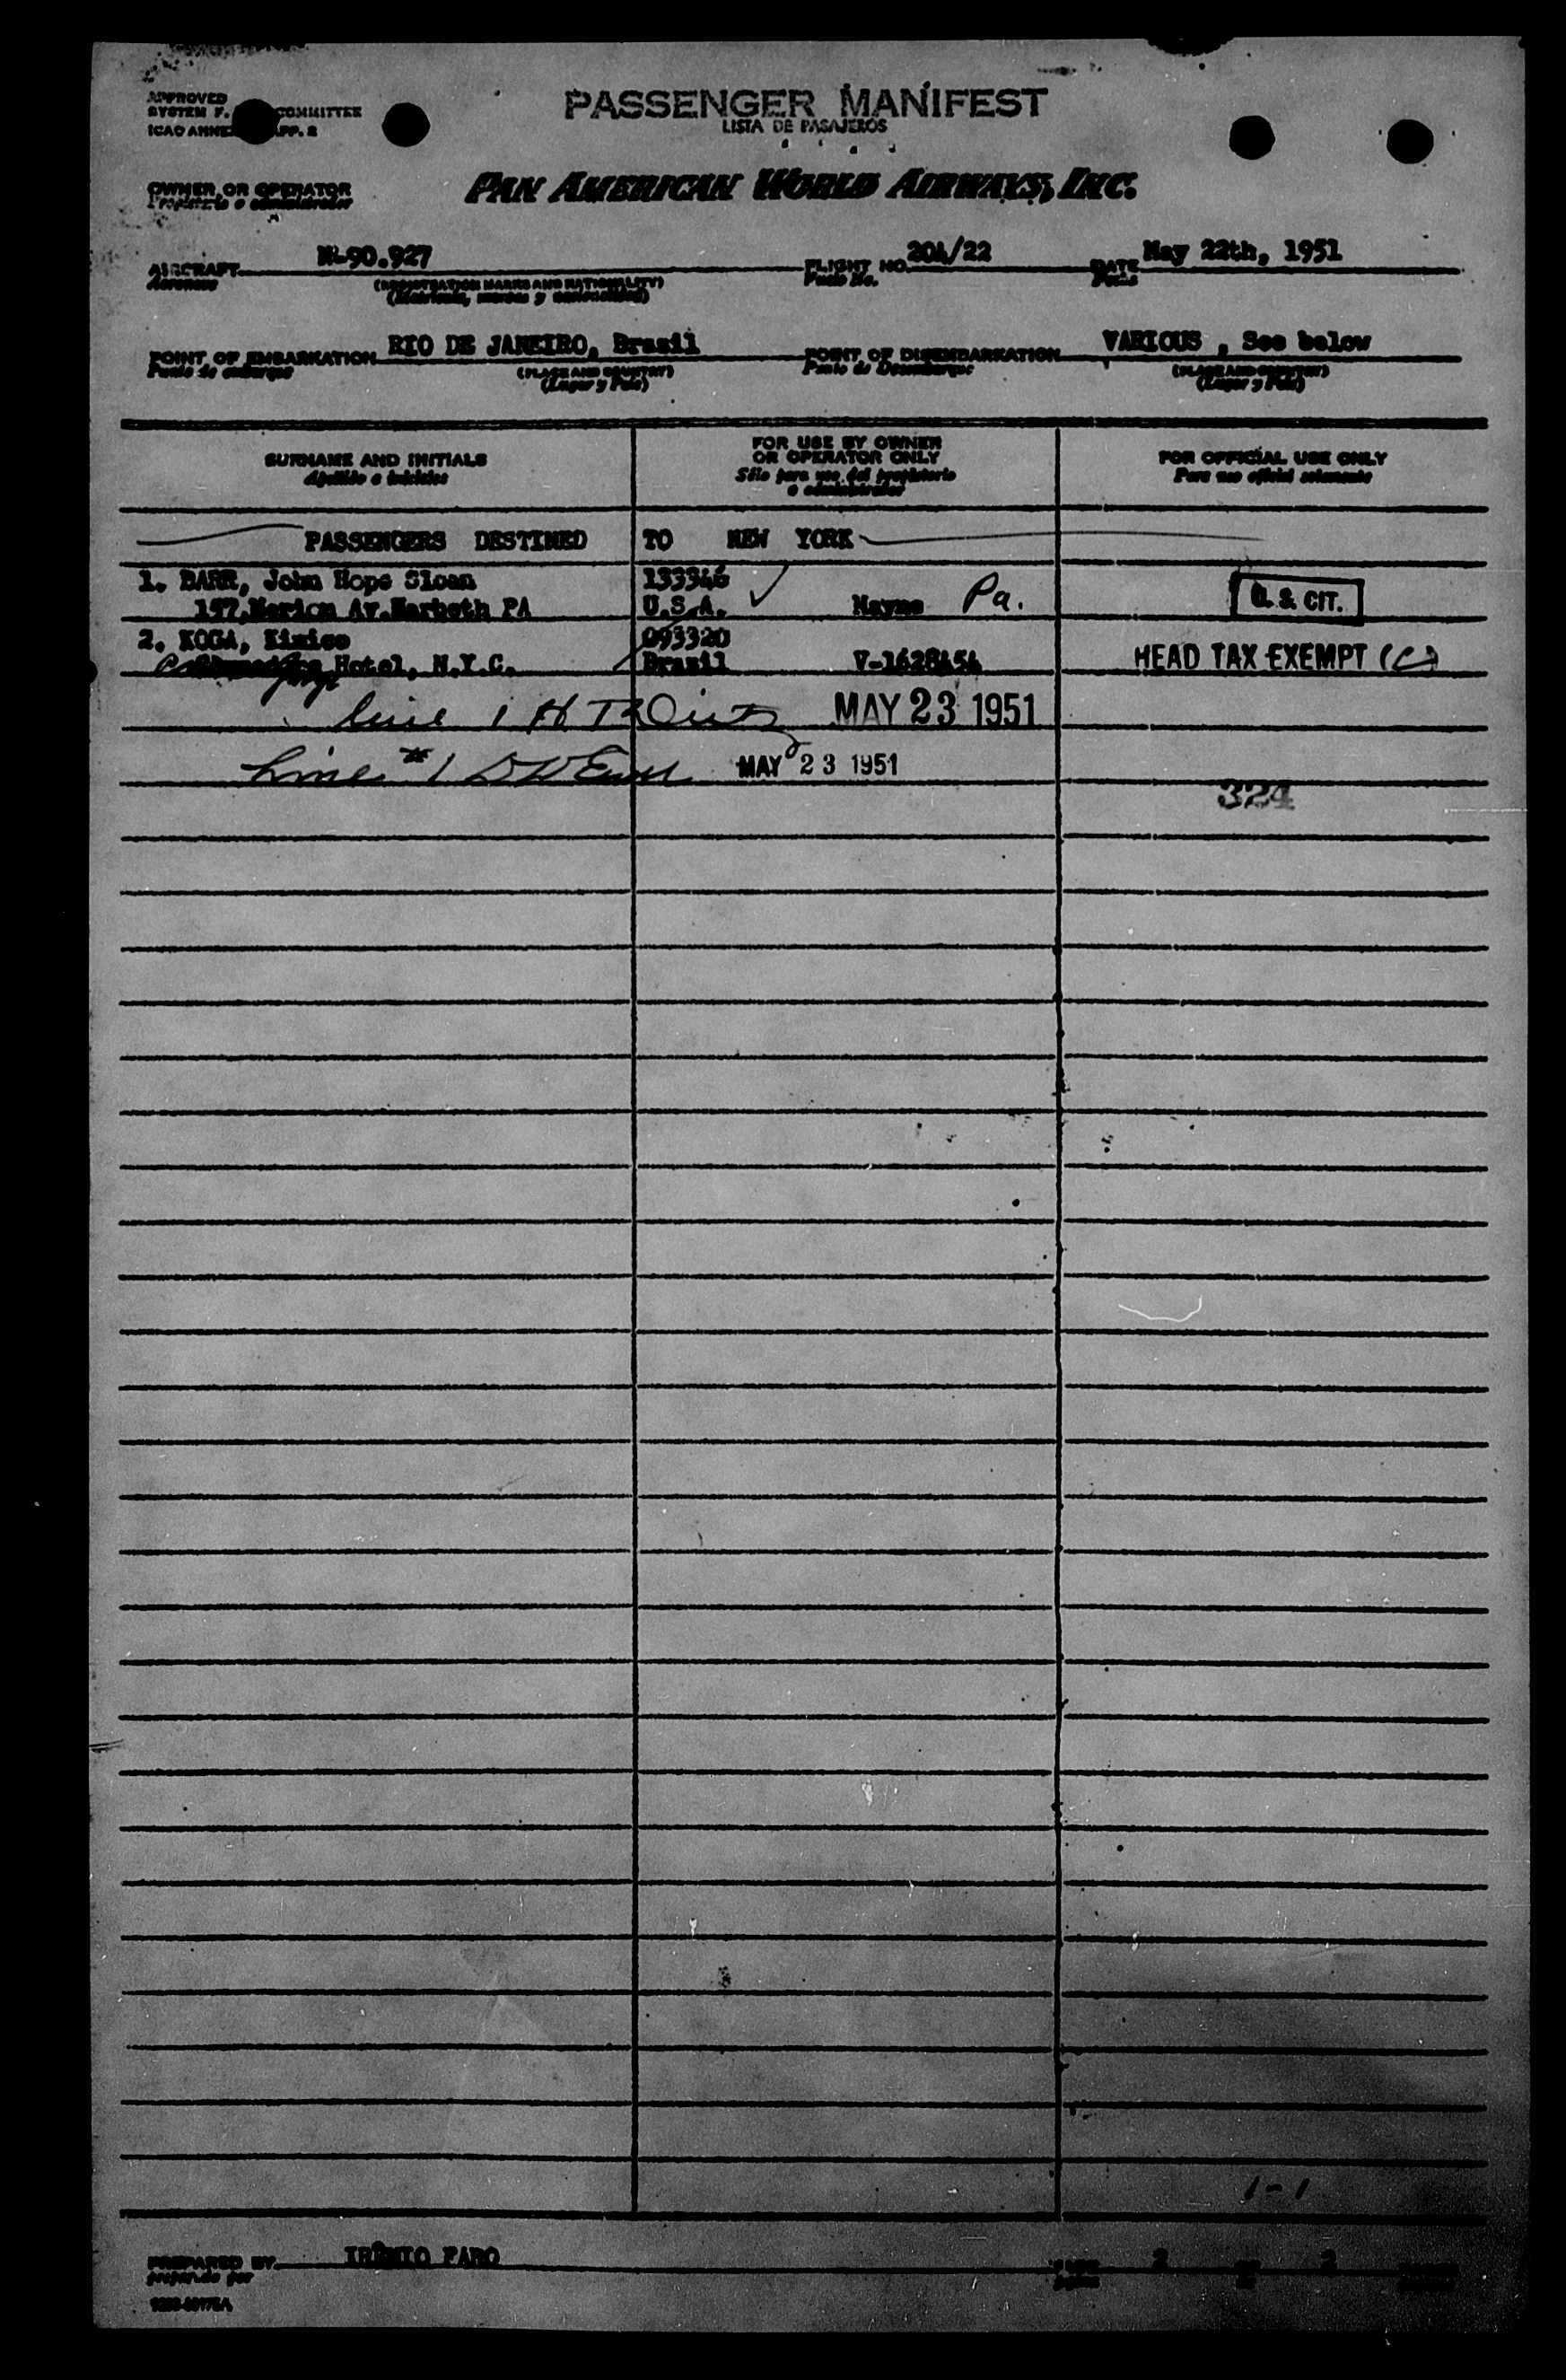 PASSENGER MANIFEST
LISTA DE PASAJEROS
APPROVED
SYSTEM F. COMMITTEE
ICAO ANNEX APP. 2
PAN AMERICAN WORLD AIRWAYS, INC.
OWNER OR OPERATOR
Propietario o administrador
AIRCRAFT N-90.927 FLIGHT NO. 204/22 DATE May 22th, 1951
Aeronave (REGISTRATION MARKS AND NATIONALITY) Vuelo No. Fecha
POINT OF EMBARKATION RIO DE JANEIRO, Brazil POINT OF DISEMBARKATION VARIOUS , See below
Punto de embarque (PLACE AND COUNTRY) Punto de Desembarque (PLACE AND COUNTRY)
(Lugar y País) (Lugar y País)
SURNAME AND INITIALS
Apellido e iniciales
FOR USE BY OWNER
OR OPERATOR ONLY
Sólo para uso del propietario
o administrador
FOR OFFICIAL USE ONLY
Para uso oficial solamente
PASSENGERS DESTINED TO NEW YORK
1. BARR, John Hope Sloan 133346
157,Merion Av.Narbeth PA U.S.A. Wayne Pa. U. S. CIT.
2. KOGA, Kimico 093320
Hotel, N.Y.C. Brazil V-1628454 HEAD TAX EXEMPT (C)
line 1 MAY 23 1951
Line #1 MAY 23 1951
324
1-1
PREPARED BY IRÊNIO FARO 2 2
preparado por